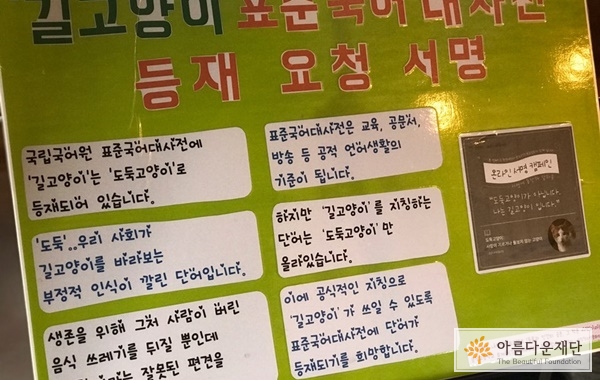 길고양이 표준국어대사전
등재 요청 서명
국립국어원 표준국어대사전에
'길고양이'는 '도둑고양이'로
등재되어 있습니다.
'도둑'..우리 사회가
길고양이를 바라보는
부정적 인식이 깔린 단어입니다.
생존을 위해 그저 사람이 버린
음식 쓰레기를 뒤질 뿐인데
잘못된 편견을
표준국어대사전은 교육, 공문서,
방송 등 공적 언어생활의
기준이 됩니다.
하지만 '길고양이'를 지칭하는
단어는 '도둑고양이'만
올라있습니다.
이에 공식적인 지칭으로
'길고양이'가 쓰일 수 있도록
표준국어대사전에 단어가
등재되기를 희망합니다.
온라인 서명 캠페인
"도둑고양이가 아닙니다.
나는 길고양이입니다."
아름다운재단
The Beautiful Foundation